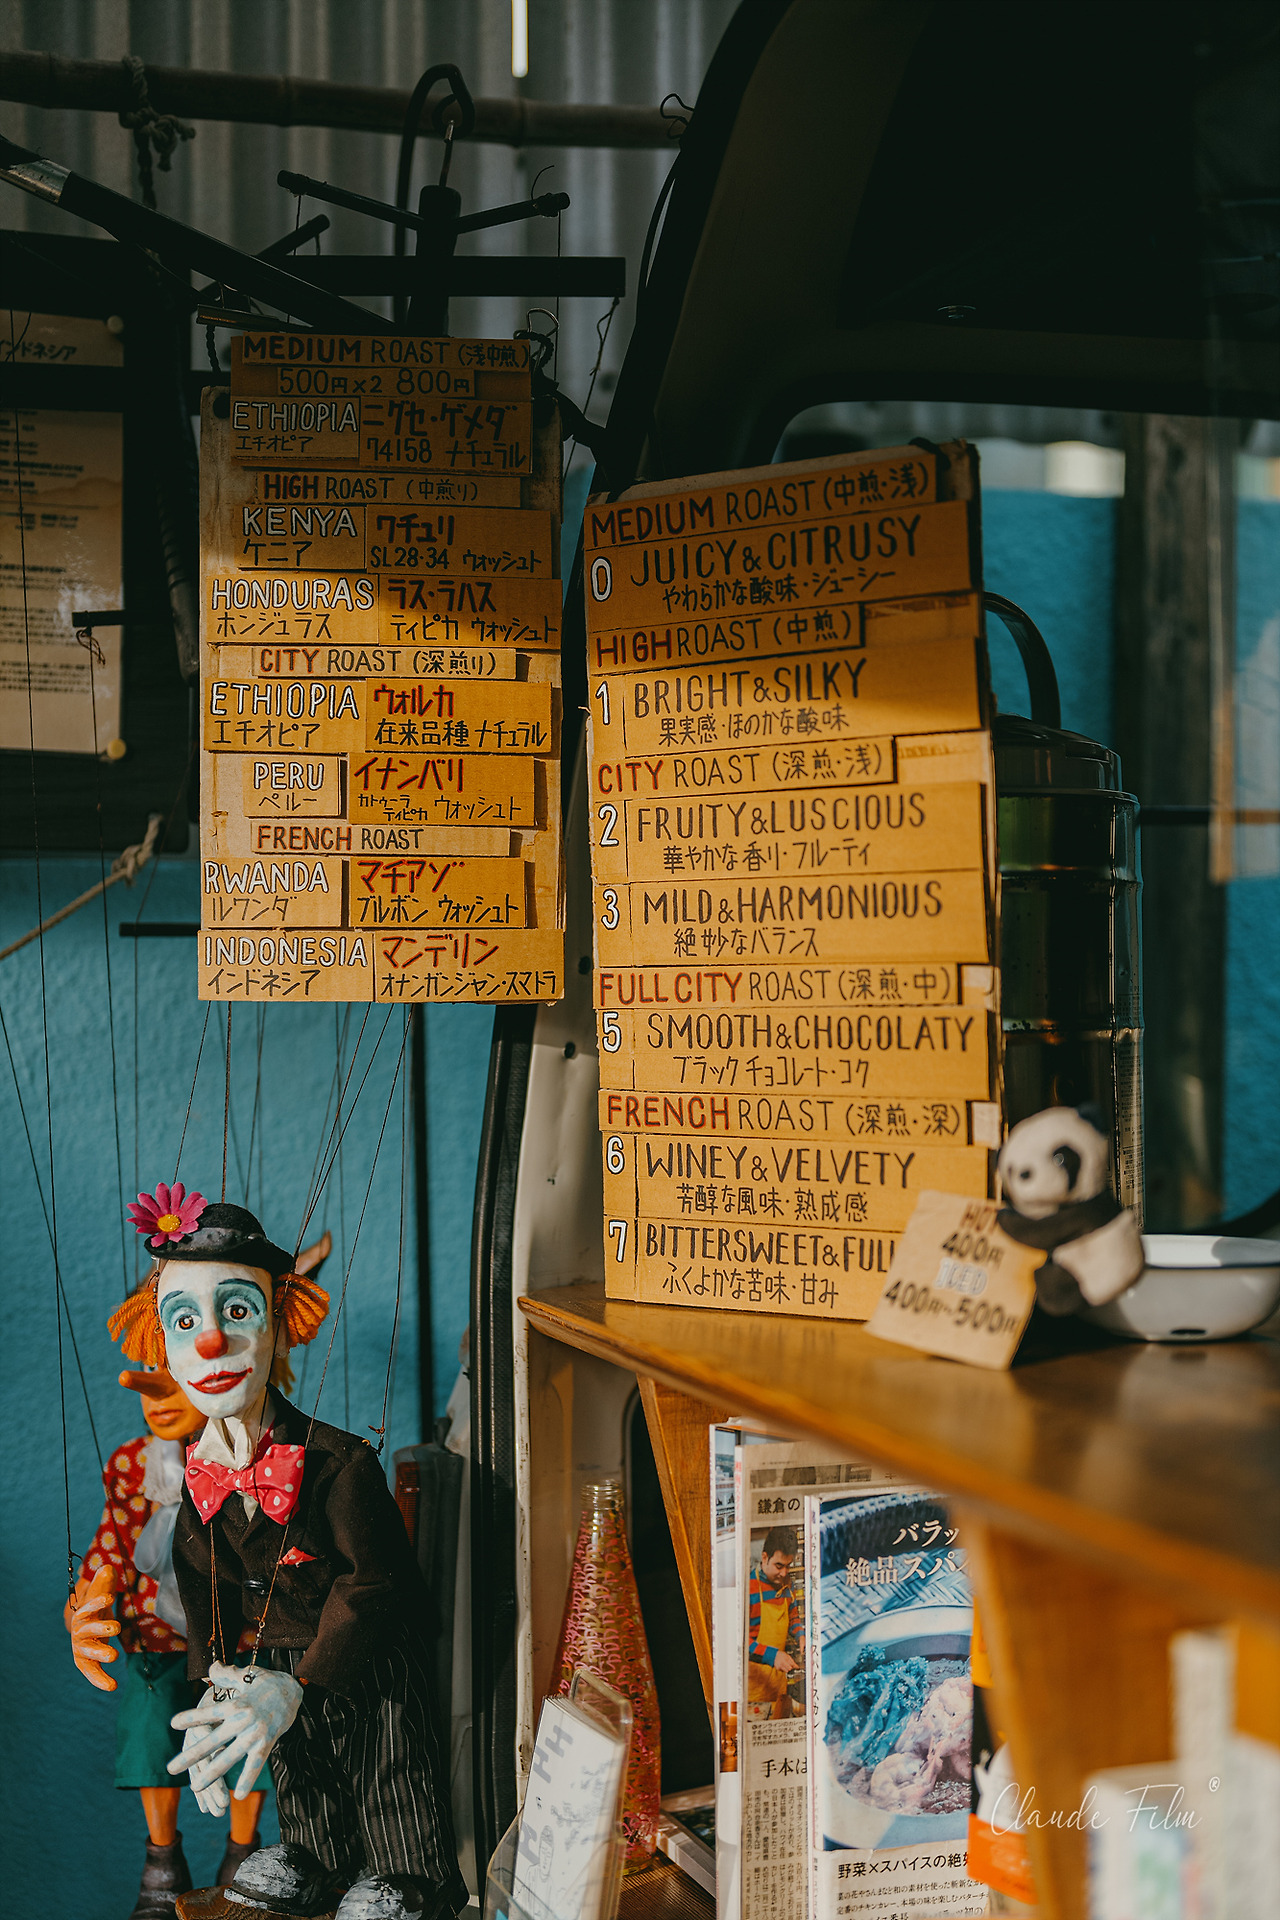 インドネシア
MEDIUM ROAST (浅中煎)
500円×2 800円
ETHIOPIA ニグセ・ゲメダ
エチオピア 74158 ナチュラル
HIGH ROAST (中煎り)
KENYA ワチュリ
ケニア SL28・34 ウォッシュト
HONDURAS ラス・ラハス
ホンジュラス ティピカ ウォッシュト
CITY ROAST (深煎り)
ETHIOPIA ウォルカ
エチオピア 在来品種 ナチュラル
PERU イナンバリ
ペルー カトゥーラ ティピカ ウォッシュト
FRENCH ROAST
RWANDA マチアゾ
ルワンダ ブルボン ウォッシュト
INDONESIA マンデリン
インドネシア オナンガンジャン・スマトラ
MEDIUM ROAST (中煎・浅)
0 JUICY&CITRUSY
やわらかな酸味・ジューシー
HIGH ROAST (中煎)
1 BRIGHT&SILKY
果実感・ほのかな酸味
CITY ROAST (深煎・浅)
2 FRUITY&LUSCIOUS
華やかな香り・フルーティ
3 MILD&HARMONIOUS
絶妙なバランス
FULL CITY ROAST (深煎・中)
5 SMOOTH&CHOCOLATY
ブラックチョコレート・コク
FRENCH ROAST (深煎・深)
6 WINEY&VELVETY
芳醇な風味・熟成感
7 BITTERSWEET&FULL
ふくよかな苦味・甘み
HOT
400円
ICED
400円~500円
鎌倉の
手本は
バラッ
絶品スパイ
野菜×スパイスの絶
Claude Film®